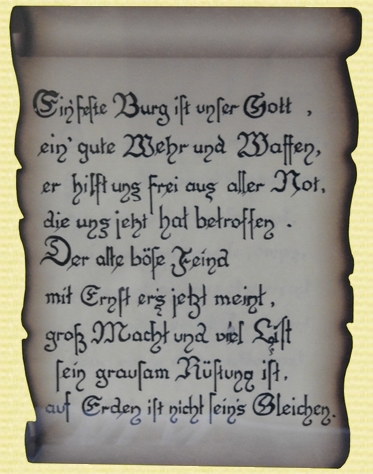 Ein feste Burg ist unser Gott ,
ein' gute Wehr und Waffen,
er hilft uns frei aus aller Not,
die uns jetzt hat betroffen .
Der alte böse Feind
mit Ernst er's jetzt meint,
groß Macht und viel List
sein grausam Rüstung ist,
auf Erden ist nicht sein's Gleichen.